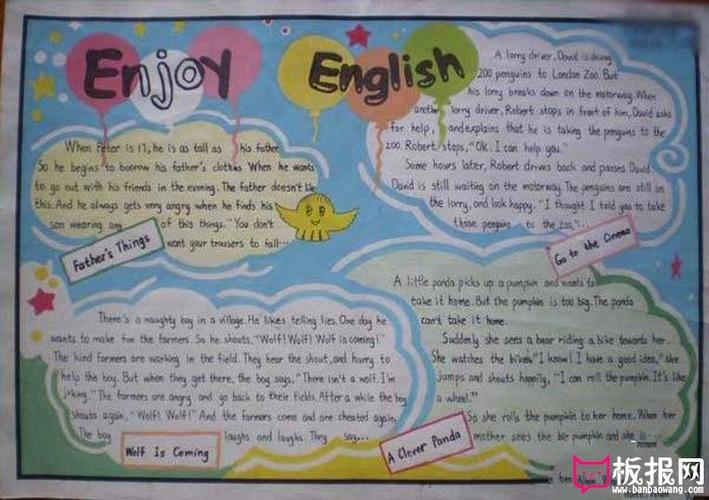 Enjoy English
When Peter is 17, he is as tall as his father.
So he begins to boorow his father's clothes When he wants
to go out with his friends in the evening. The father doesn't like
this. And he always gets very angry when he finds his
son wearing any of this things. "You don't
want your trousers to fall...
Father's Things
A lorry driver, David is driving
200 penguins to London Zoo. But
his lorry breaks down on the motorway. When
another lorry driver, Robert stops in front of him, David asks
for help, and explains that he is taking the penguins to the
zoo. Robert stops, "Ok. I can help you."
Some hours later, Robert drives back and passes David.
David is still waiting on the motorway. The penguins are still on
the lorry, and look happy. "I thought I told you to take
those penguins to the zoo,"..
Go to the Cinema
There's a naughty boy in a village. He likes telling lies. One day he
wants to make fun the farmers. So he shouts, "Wolf! Wolf! Wolf is coming!"
The kind farmers are working in the field. They hear the shout, and hurry to
help the boy. But when they get there, the boy says, "There isn't a wolf. I'm
joking." The farmers are angry and go back to their fields. After a while the boy
shouts again, "Wolf! Wolf!" And the farmers come and are cheated again.
The boy laughs and laughs. They say...
Wolf Is Coming
A little panda picks up a pumpkin and wants to
take it home. But the pumpkin is too big. The panda
can't take it home.
Suddenly she sees a bear riding a bike towards her.
She watches the bike. "I know! I have a good idea," she
jumps and shouts happily, "I can roll the pumpkin. It's like
a wheel."
So she rolls the pumpkin to her home. When her
mother sees the big pumpkin and she is
A Clever Panda
板报网
www.banbaowang.com